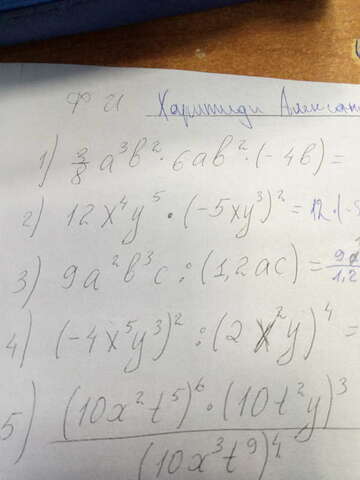 Ф И Харитиди Алексан
1) 3/8 a³b² · 6ab² · (-4b) =
2) 12x⁴y⁵ · (-5xy³)² = 12 · (-5
3) 9a²b³c : (1,2ac) = 9a/1,2
4) (-4x⁵y³)² : (2x²y)⁴ =
5) (10x²t⁵)⁶ · (10t²y)³
(10x³t⁹)⁴